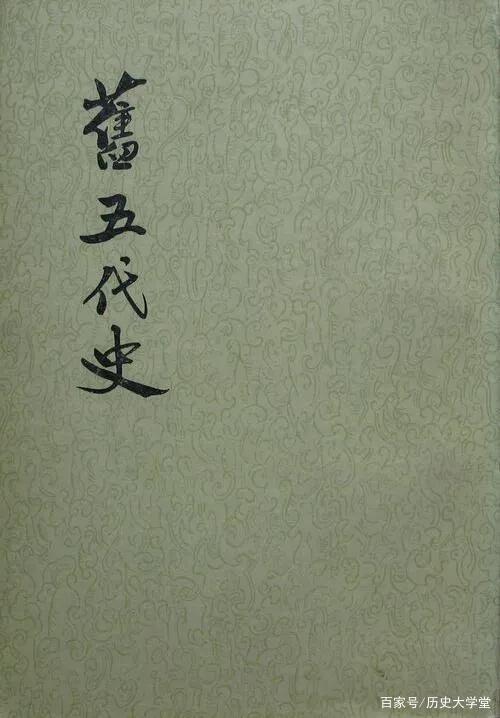 舊五代史
百家号/历史大学堂